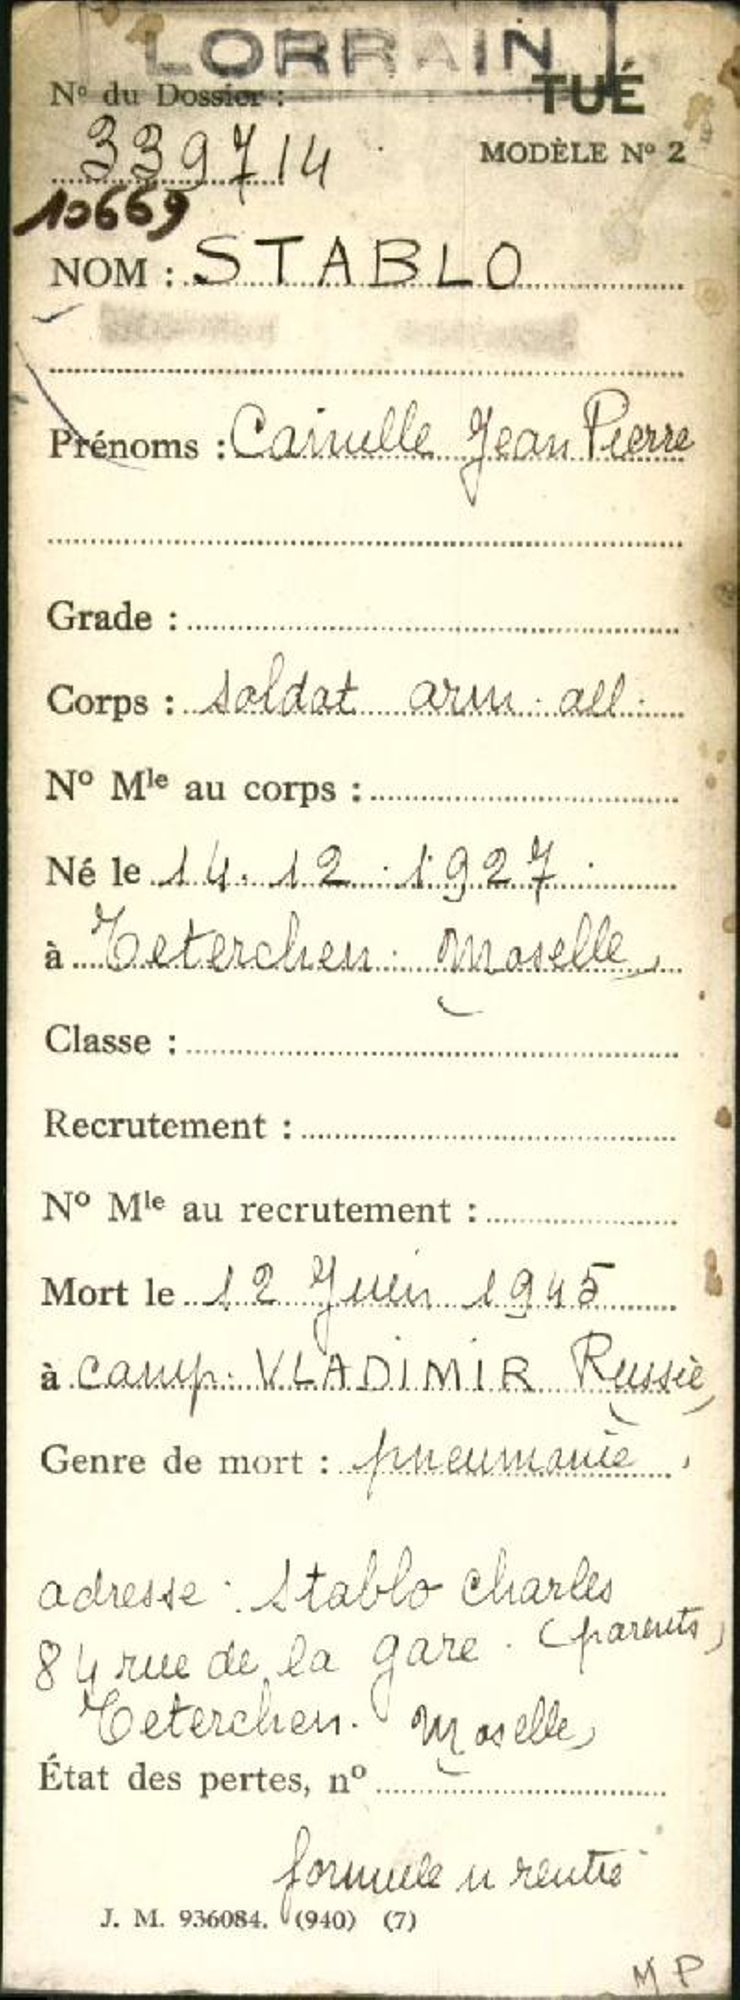 LORRAIN
N° du Dossier :
TUÉ
339714
MODÈLE N° 2
10669
NOM : STABLO
Prénoms : Camille Jean Pierre
Grade :
Corps : soldat arm. all.
N° Mle au corps :
Né le 14.12.1927
à Teterchen. Moselle
Classe :
Recrutement :
N° Mle au recrutement :
Mort le 12 Juin 1945
à camp. VLADIMIR Russie
Genre de mort : pneumonie
adresse : Stablo Charles
84 rue de la gare. (parents)
Teterchen. Moselle
État des pertes, n°
formule rentré
J. M. 936084. (940) (7)
MP